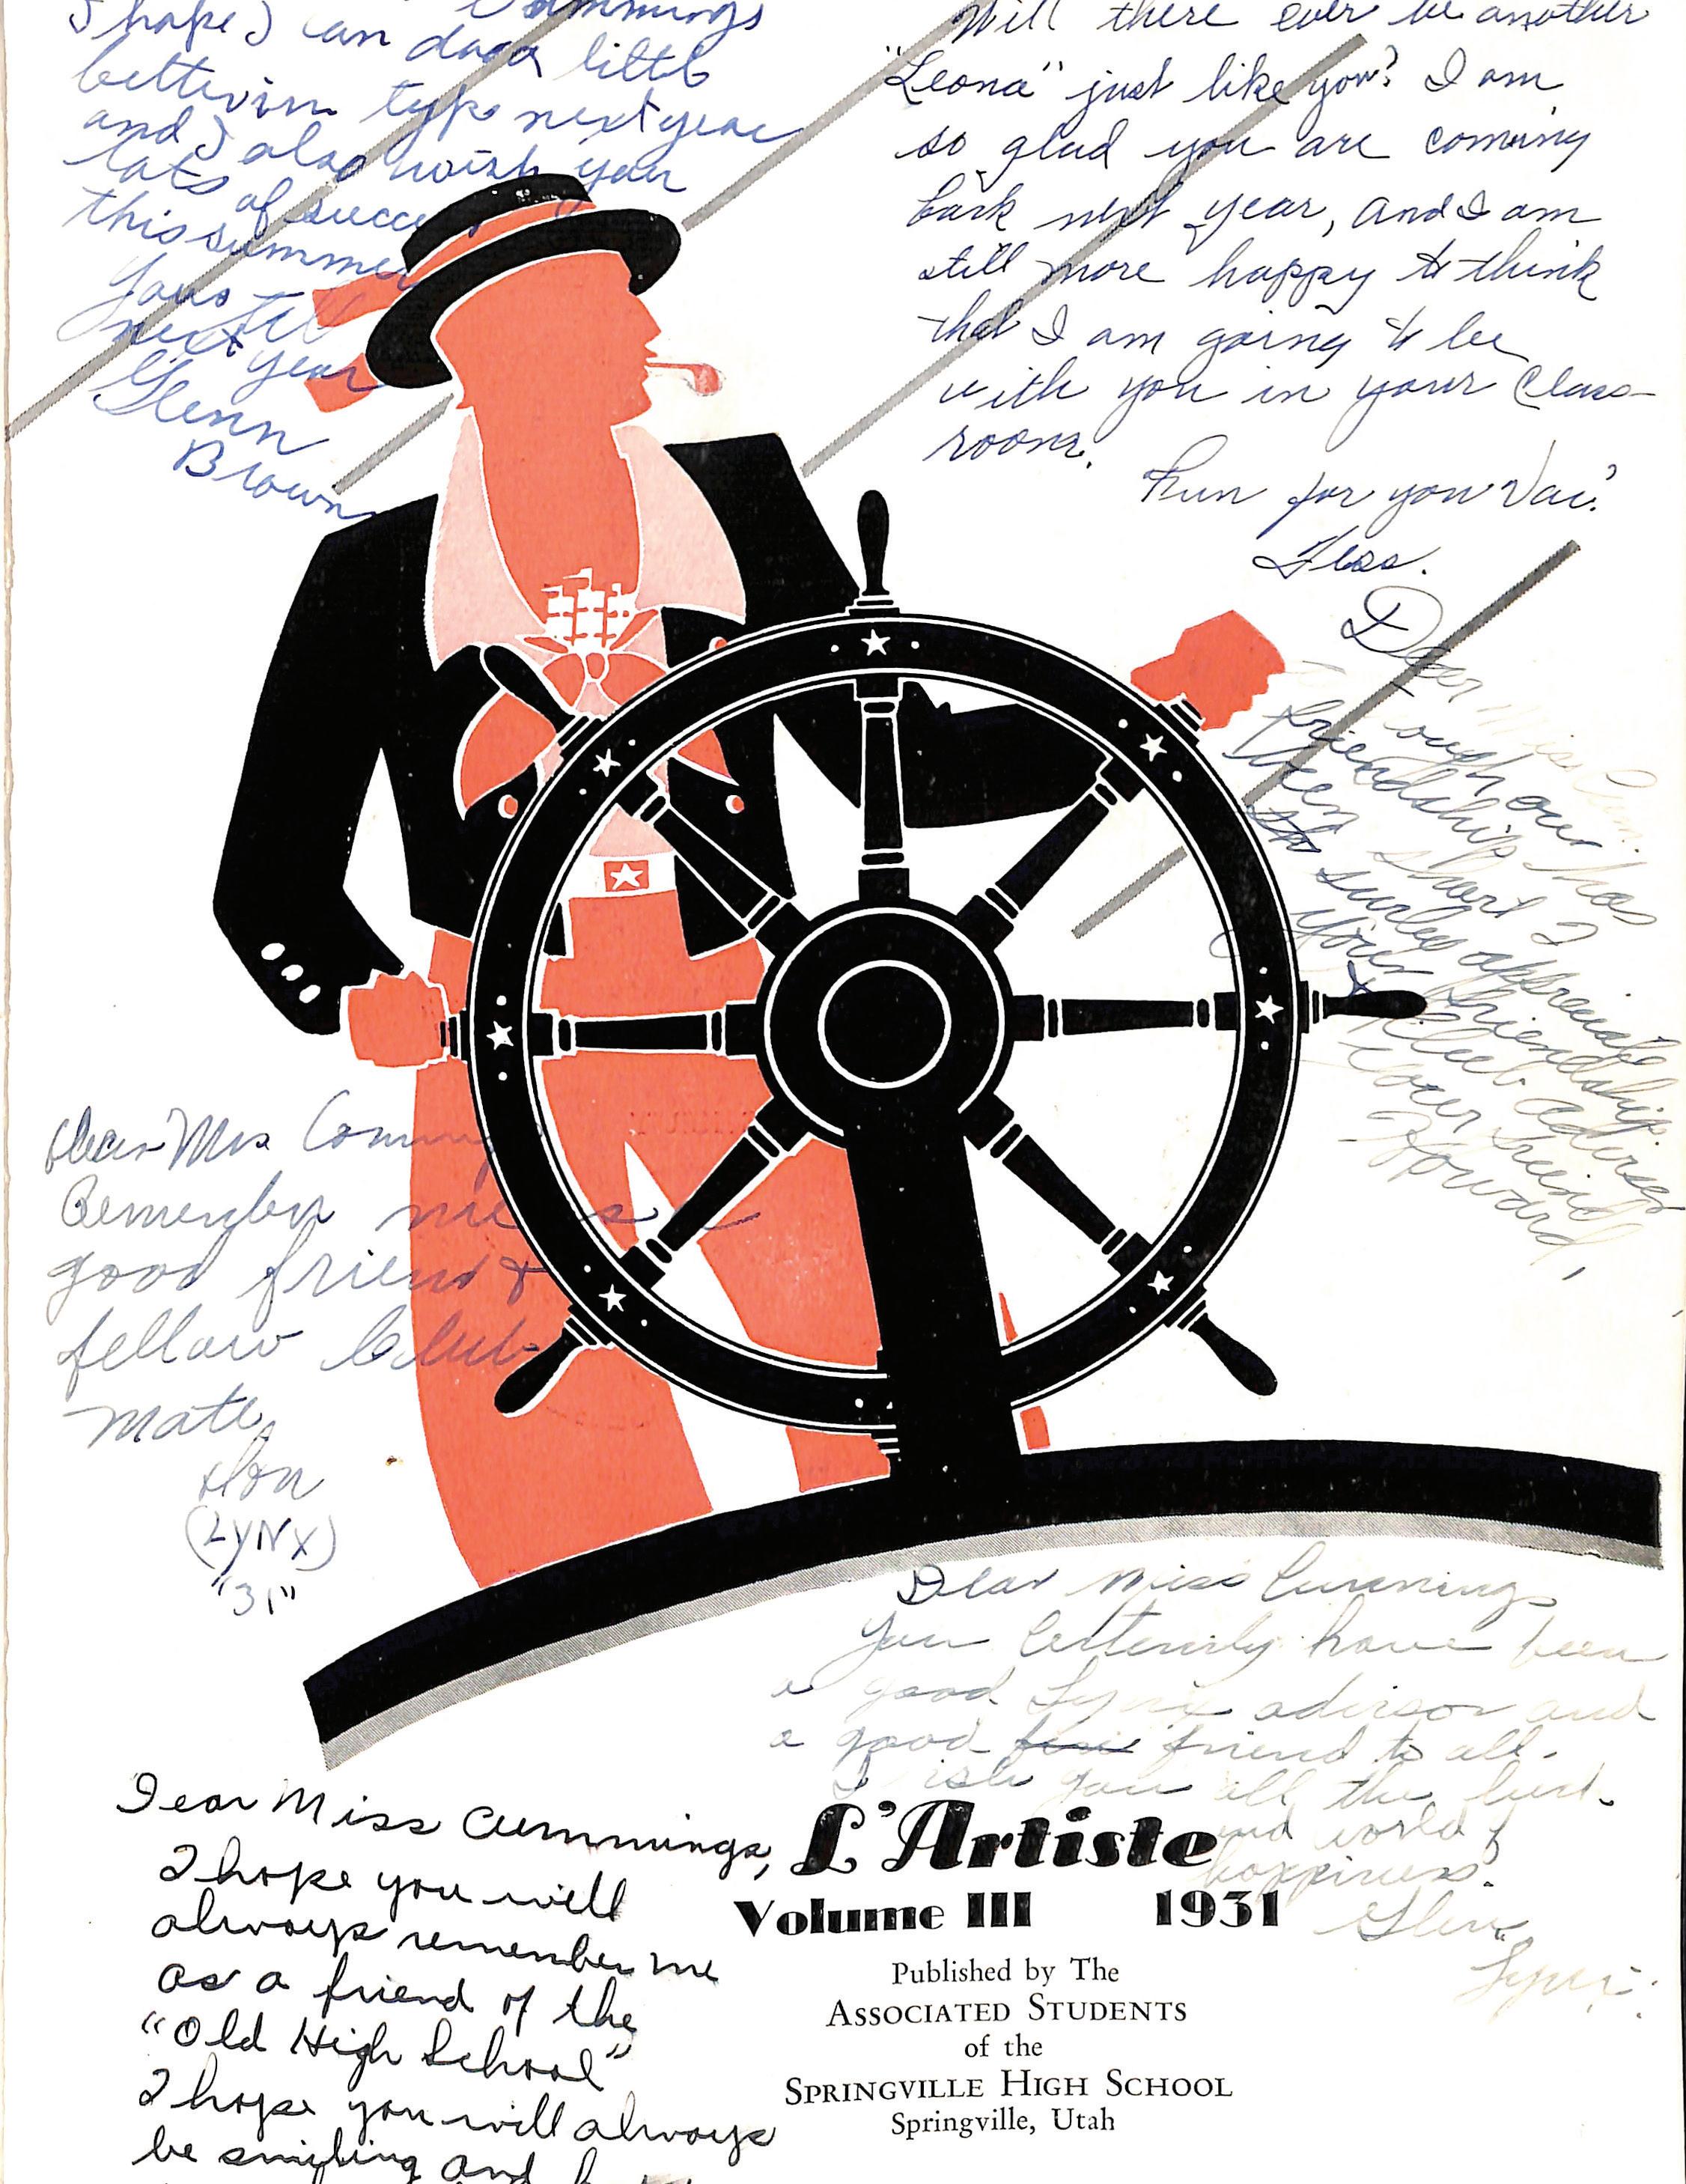 Cummings
I hope I can do a little
better in type next year
and I also wish you
lots of success
this summer
Yours till
next year
Glenn
Brown
Will there ever be another
"Leona" just like you? I am
so glad you are coming
back next year, and I am
still more happy to think
that I am going to be
with you in your class-
room.
Fun for you Vac.
Dear Miss Cum.
our
friendship has
been short I
surley appreciate
your friendship
& Club adviser
Your freind
Howard,
Dear Mrs Comming
Remember me as a
good friend &
fellow Club
mate
Don
(LYNX)
"31"
Dear Miss Cummings
You certenly have been
a good Lynx advisor and
a good friend to all.
I wish you all the luck
and world of
happiness.
Glen
Lynx
Dear Miss Cummings,
I hope you will
always remember me
as a friend of the
"Old High School"
I hope you will always
be smiling and
L'Artiste
Volume III 1931
Published by The
ASSOCIATED STUDENTS
of the
SPRINGVILLE HIGH SCHOOL
Springville, Utah